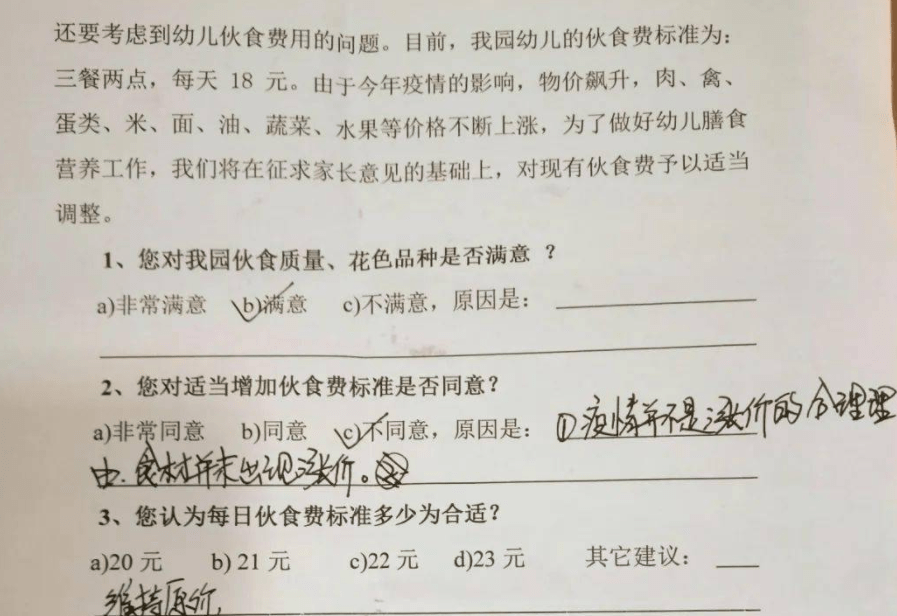 还要考虑到幼儿伙食费用的问题。目前，我园幼儿的伙食费标准为：
三餐两点，每天 18 元。由于今年疫情的影响，物价飙升，肉、禽、
蛋类、米、面、油、蔬菜、水果等价格不断上涨，为了做好幼儿膳食
营养工作，我们将在征求家长意见的基础上，对现有伙食费予以适当
调整。
1、您对我园伙食质量、花色品种是否满意 ？
a)非常满意 b)满意 c)不满意，原因是：
2、您对适当增加伙食费标准是否同意？
a)非常同意 b)同意 c)不同意，原因是： ①疫情并不是涨价的合理理
由. 食材并未出现涨价。
3、您认为每日伙食费标准多少为合适？
a)20 元 b) 21 元 c)22 元 d)23 元 其它建议：
维持原价.